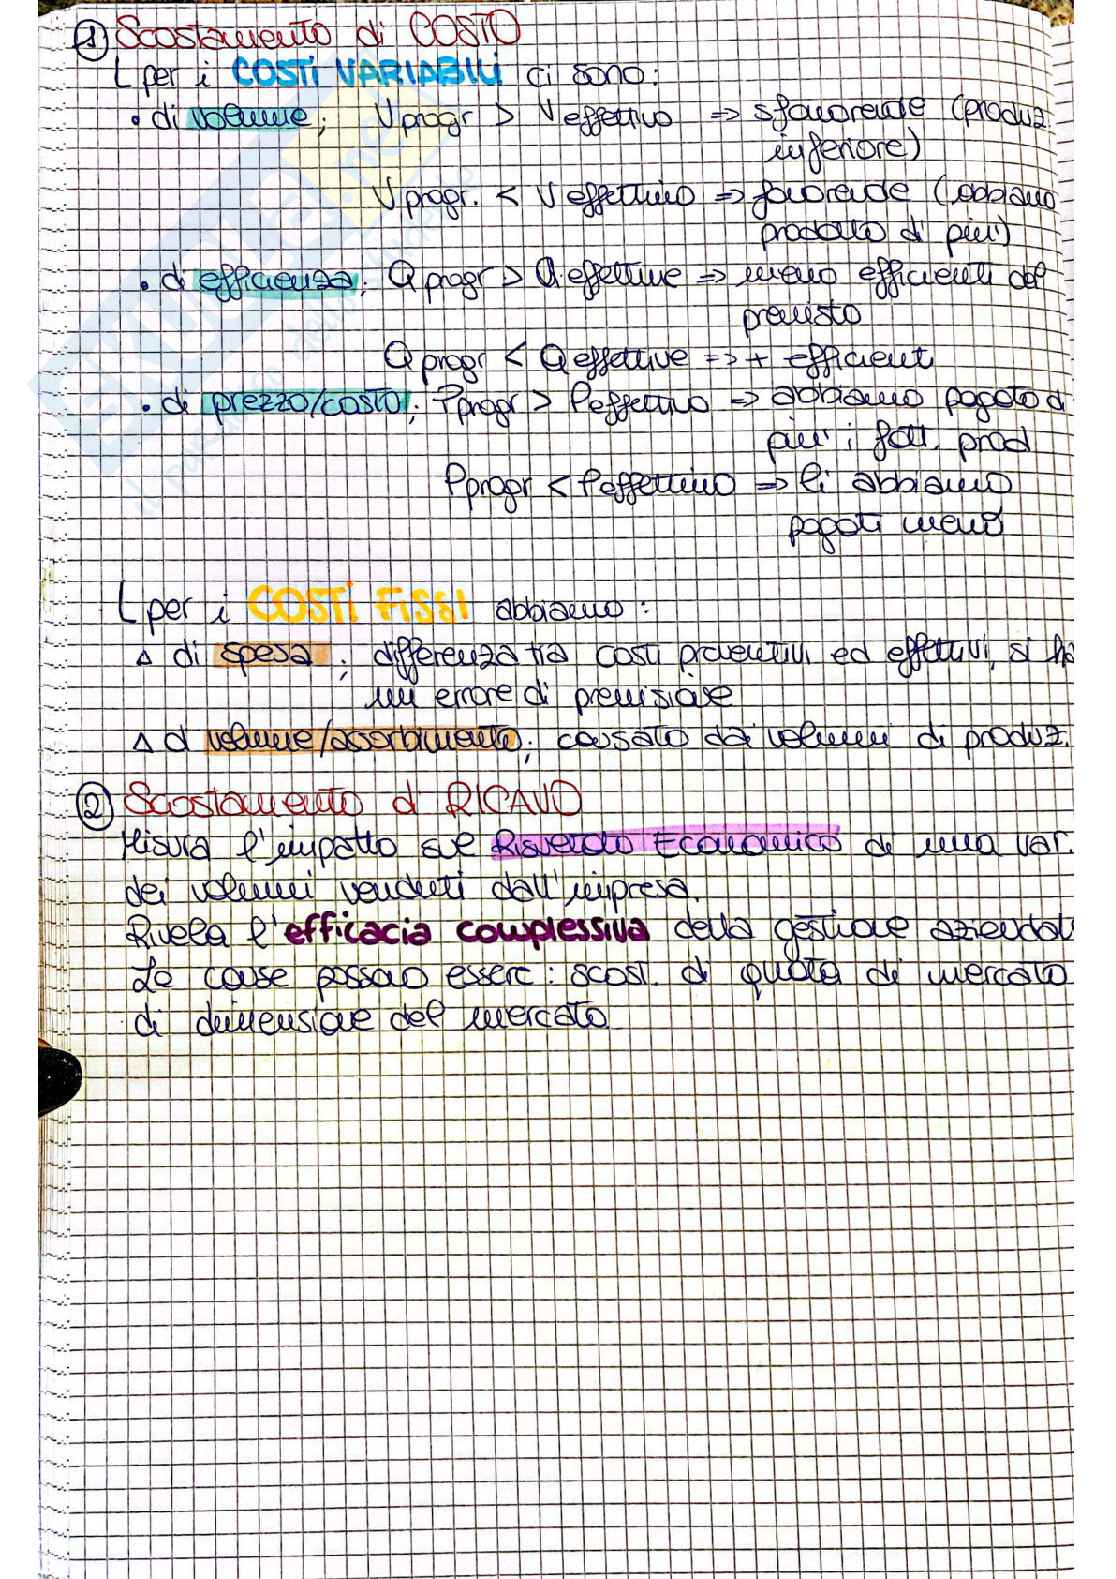 ① Scostamento di COSTO
per i COSTI VARIABILI ci sono:
• di volume; Vprogr > Veffettivo => sfavorevole (produz.
inferiore)
Vprogr. < Veffettivo => favorevole (abbiamo
prodotto di più)
• di efficienza; Qprogr > Q.effettive => meno efficienti del
previsto
Qprogr < Qeffettive => + efficienti
• di prezzo/costo; Pprogr > Peffettivo => abbiamo pagato di
più i fatt. prod
Pprogr < Peffettivo => li abbiamo
pagati meno
per i COSTI FISSI abbiamo:
Δ di spesa; differenza tra costi preventivi ed effettivi, si ha
un errore di previsione
Δ di volume/assorbimento; causato dai volumi di produz.
② Scostamento di RICAVO
Misura l'impatto sul Risultato Economico di una var.
dei volumi venduti dall'impresa.
Rivela l'efficacia complessiva della gestione aziendal
Le cause possono essere: scost. di quota di mercato
di dimensione del mercato